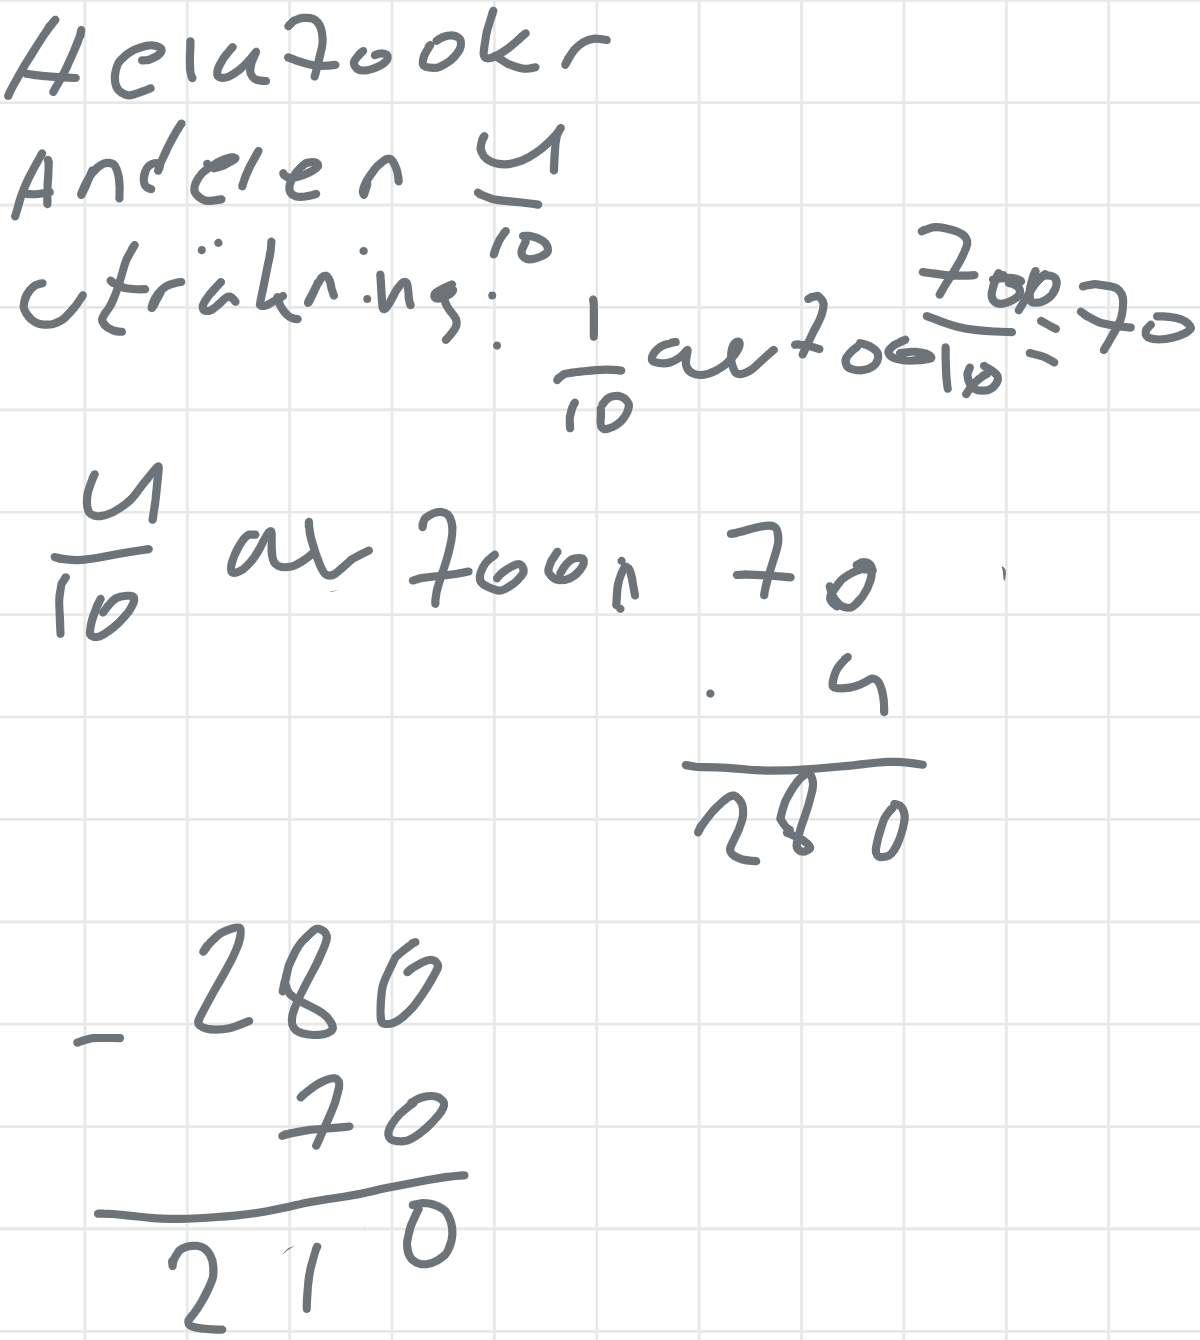 Hela 700kr
Andelen 4/10
uträkning: 1/10 av 700 700/10 = 70
4/10 av 700, 70
· 4
280
280
- 70
210